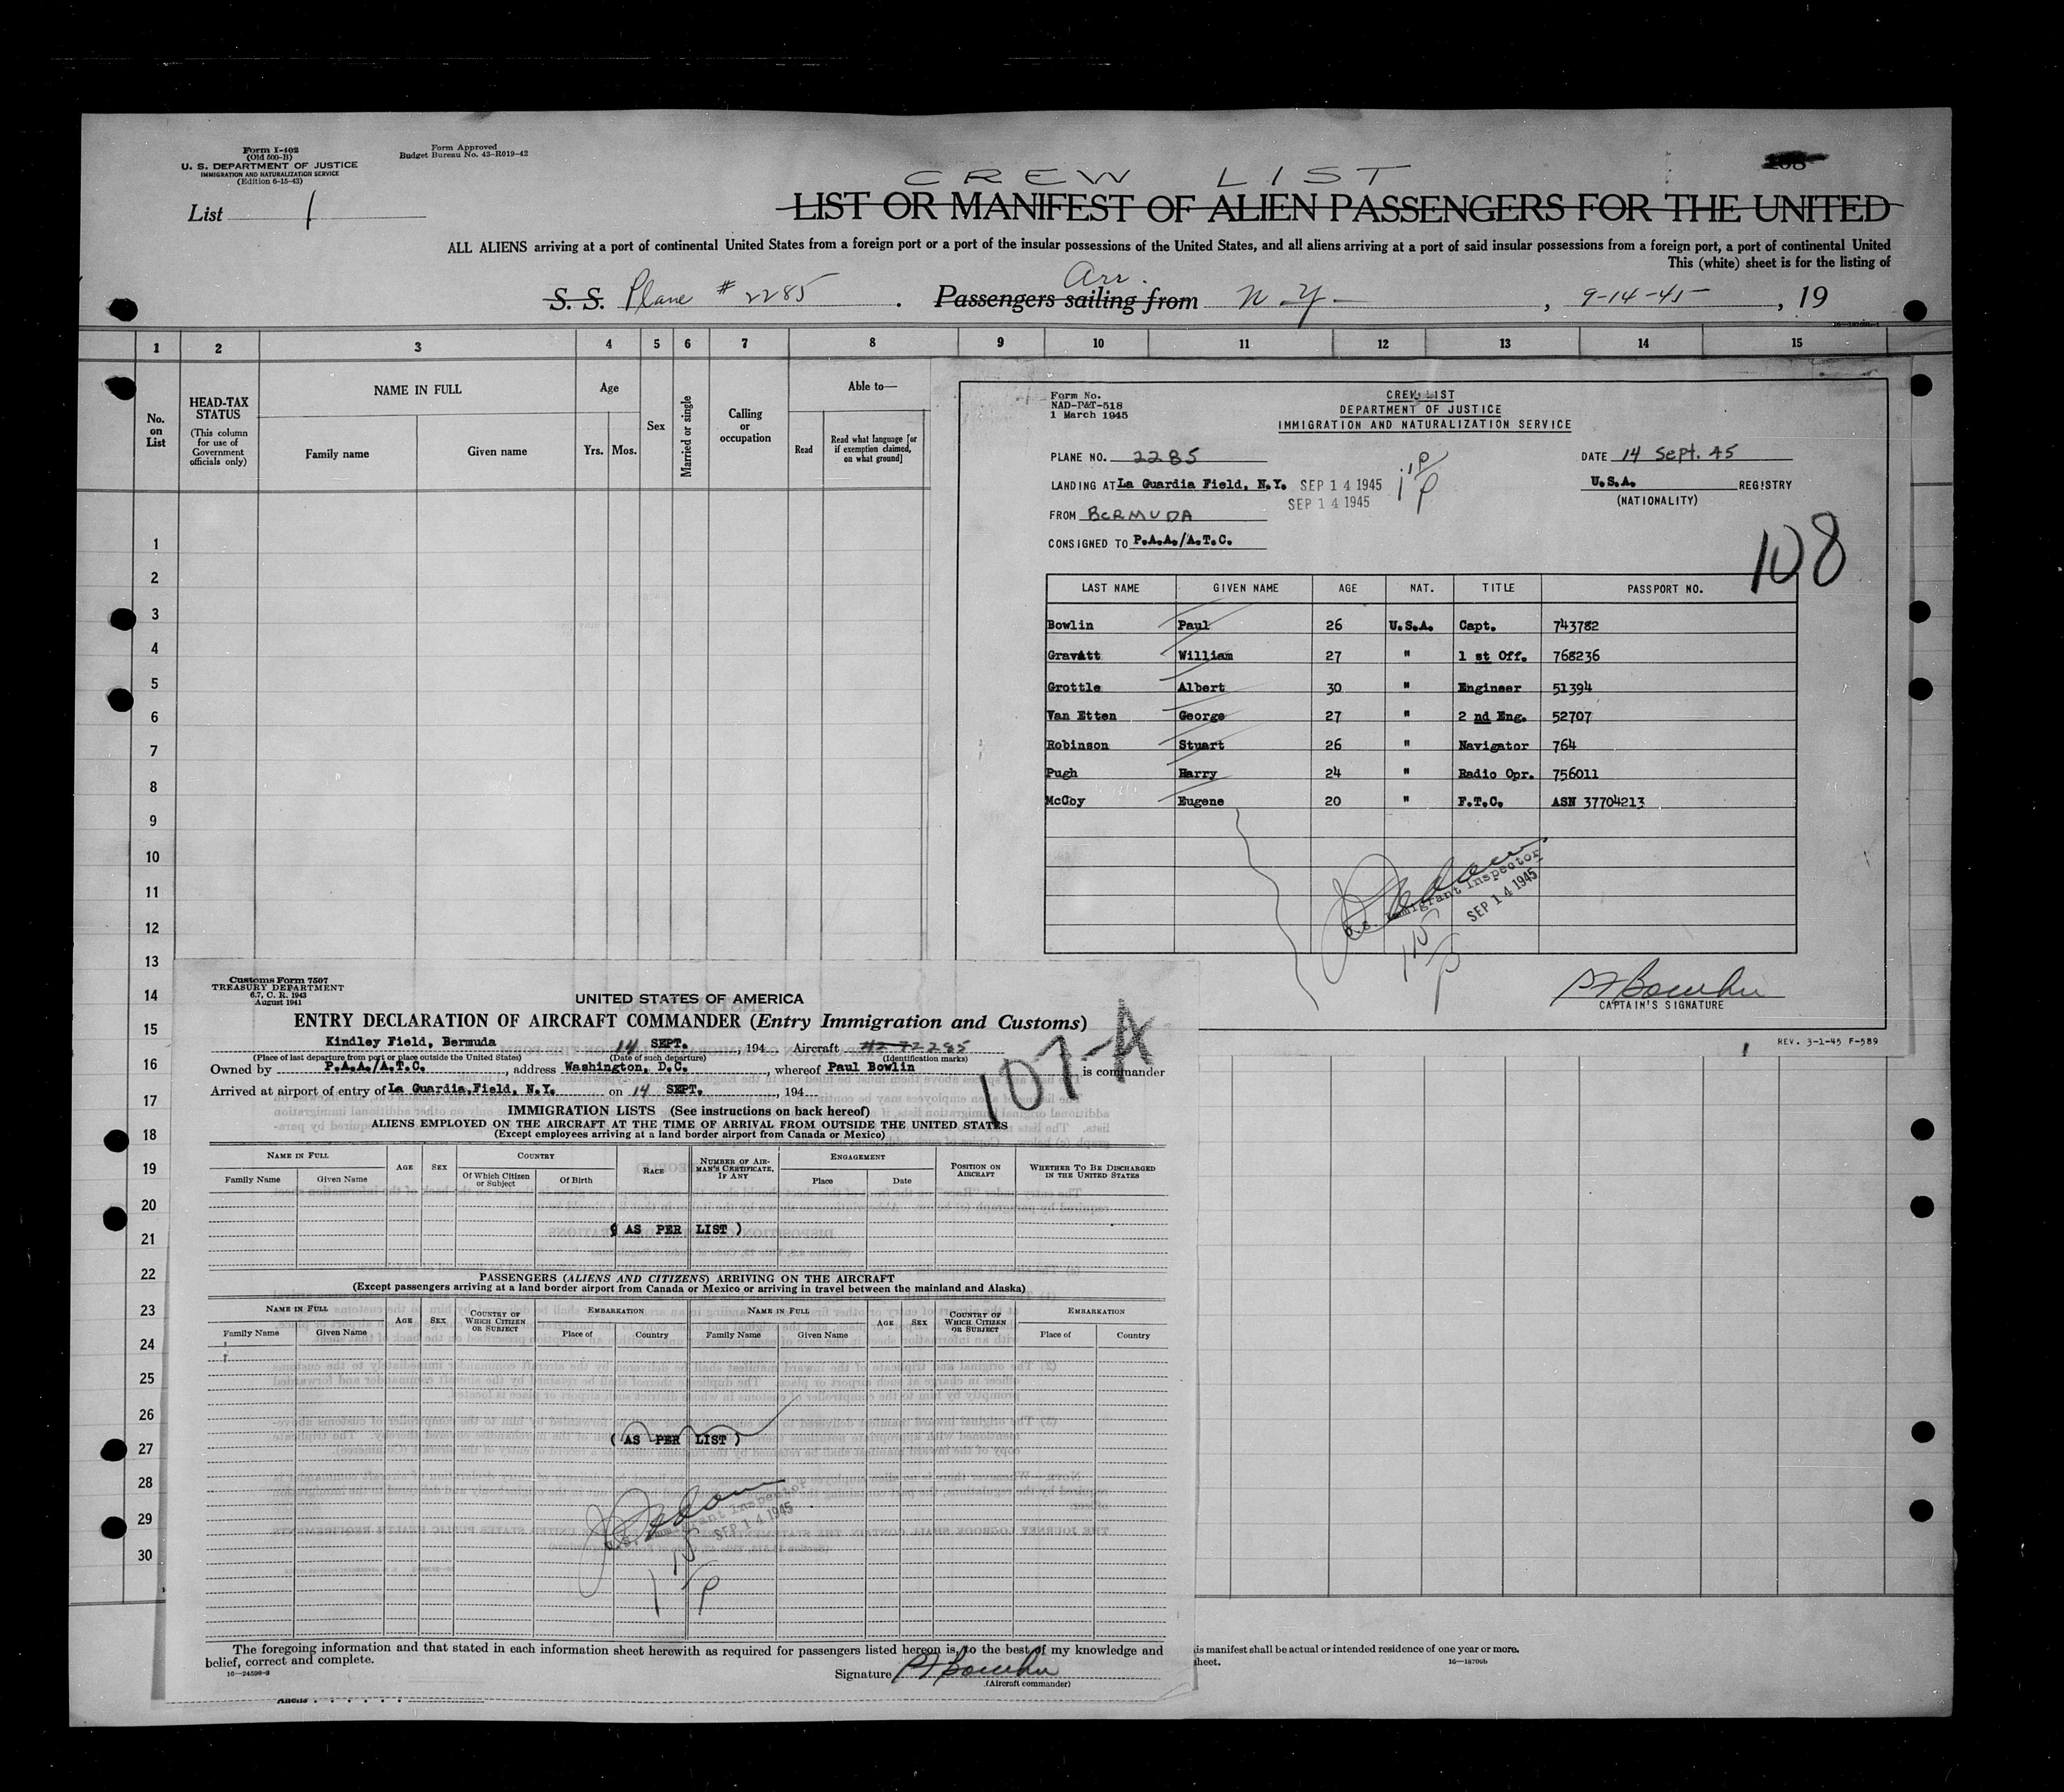 Form I-402
(Old 500-B)
U. S. DEPARTMENT OF JUSTICE
IMMIGRATION AND NATURALIZATION SERVICE
(Edition 6-15-43)
Form Approved
Budget Bureau No. 43-R019-42
List 1
CREW LIST
LIST OR MANIFEST OF ALIEN PASSENGERS FOR THE UNITED
ALL ALIENS arriving at a port of continental United States from a foreign port or a port of the insular possessions of the United States, and all aliens arriving at a port of said insular possessions from a foreign port, a port of continental United
This (white) sheet is for the listing of
Arr.
S. S. Plane # 2285 . Passengers sailing from N.Y. , 9-14-45 , 19
1 2 3 4 5 6 7 8 9 10 11 12 13 14 15
No. on List
HEAD-TAX STATUS
(This column for use of Government officials only)
NAME IN FULL
Family name Given name
Age
Yrs. Mos.
Sex
Married or single
Calling or occupation
Able to—
Read
Read what language [or if exemption claimed, on what ground]
1
2
3
4
5
6
7
8
9
10
11
12
13
14
15
16
17
18
19
20
21
22
23
24
25
26
27
28
29
30
Form No.
NAD-P&T-518
1 March 1945
CREW LIST
DEPARTMENT OF JUSTICE
IMMIGRATION AND NATURALIZATION SERVICE
PLANE NO. 2285
DATE 14 Sept. 45
LANDING AT La Guardia Field, N.Y. SEP 14 1945
SEP 14 1945
U.S.A. REGISTRY
(NATIONALITY)
FROM BERMUDA
CONSIGNED TO P.A.A./A.T.C.
108
LAST NAME GIVEN NAME AGE NAT. TITLE PASSPORT NO.
Bowlin Paul 26 U.S.A. Capt. 743782
Gravatt William 27 " 1 st Off. 768236
Grottle Albert 30 " Engineer 51394
Van Etten George 27 " 2 nd Eng. 52707
Robinson Stuart 26 " Navigator 764
Pugh Harry 24 " Radio Opr. 756011
McCoy Eugene 20 " F.T.C. ASN 37704213
U.S. Immigrant Inspector
SEP 14 1945
P F Bowlin
CAPTAIN'S SIGNATURE
REV. 3-1-45 F-589
Customs Form 7507
TREASURY DEPARTMENT
6.7, C. R. 1943
August 1941
UNITED STATES OF AMERICA
ENTRY DECLARATION OF AIRCRAFT COMMANDER (Entry Immigration and Customs)
107-A
Kindley Field, Bermuda 14 SEPT. , 194 Aircraft 2285
(Place of last departure from port or place outside the United States) (Date of such departure) (Identification marks)
Owned by P.A.A./A.T.C. , address Washington, D.C. , whereof Paul Bowlin is commander
Arrived at airport of entry of La Guardia Field, N.Y. on 14 SEPT. , 194
IMMIGRATION LISTS (See instructions on back hereof)
ALIENS EMPLOYED ON THE AIRCRAFT AT THE TIME OF ARRIVAL FROM OUTSIDE THE UNITED STATES
(Except employees arriving at a land border airport from Canada or Mexico)
NAME IN FULL AGE SEX COUNTRY RACE NUMBER OF AIRMAN'S CERTIFICATE, IF ANY ENGAGEMENT POSITION ON AIRCRAFT WHETHER TO BE DISCHARGED IN THE UNITED STATES
Family Name Given Name Of Which Citizen or Subject Of Birth Place Date
( AS PER LIST )
PASSENGERS (ALIENS AND CITIZENS) ARRIVING ON THE AIRCRAFT
(Except passengers arriving at a land border airport from Canada or Mexico or arriving in travel between the mainland and Alaska)
NAME IN FULL AGE SEX COUNTRY OF WHICH CITIZEN OR SUBJECT EMBARKATION NAME IN FULL AGE SEX COUNTRY OF WHICH CITIZEN OR SUBJECT EMBARKATION
Family Name Given Name Place of Country Family Name Given Name Place of Country
( AS PER LIST )
Immigrant Inspector
SEP 14 1945
The foregoing information and that stated in each information sheet herewith as required for passengers listed hereon is, to the best of my knowledge and
belief, correct and complete.
16—24598-2
Signature P F Bowlin
(Aircraft commander)
Aliens
is manifest shall be actual or intended residence of one year or more.
sheet.
16—18700b